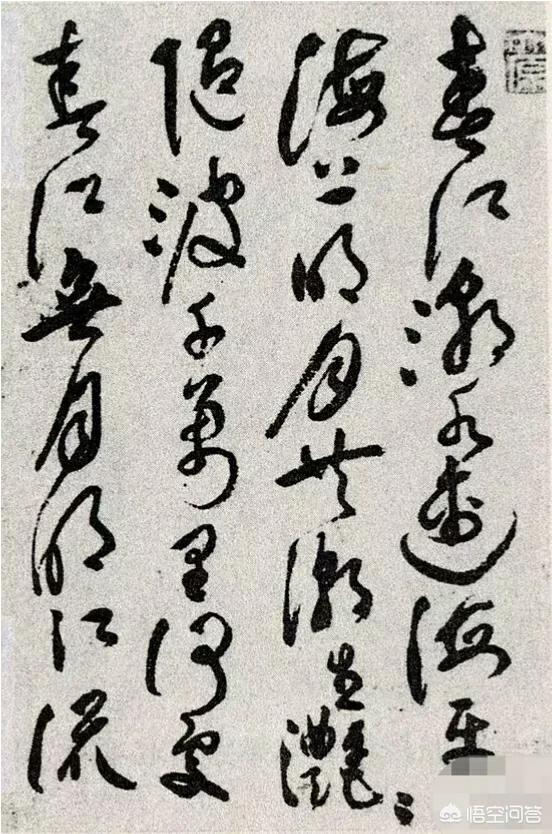 春江潮水連海平
海上明月共潮生灧〻
隨波千萬里何處
春江無月明江流
悟空问答